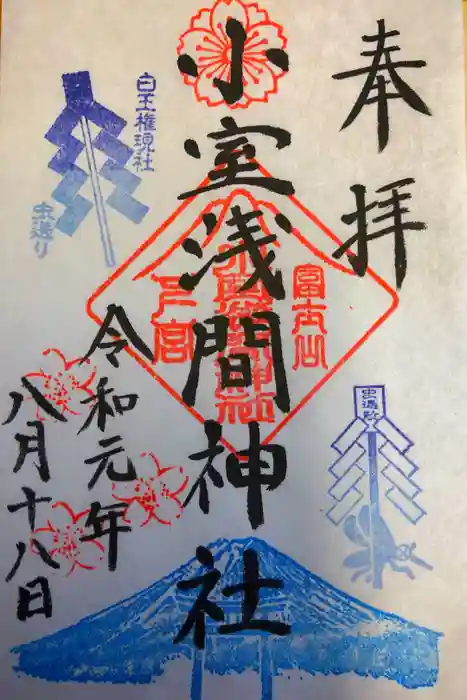 奉拝
小室浅間神社
富士山
下宮
小室浅間神社
令和元年
八月十八日
白玉権現社
虫送り